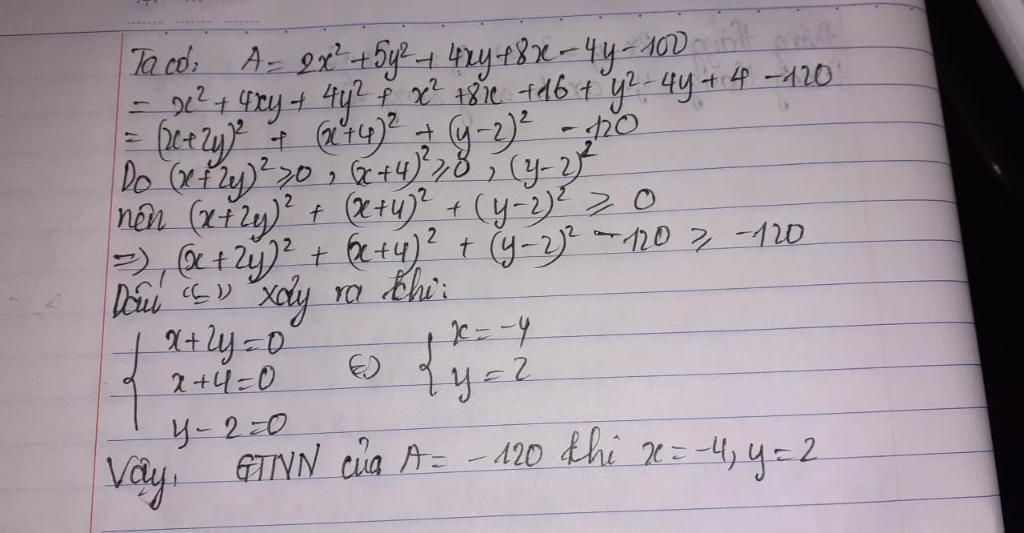 Ta có: A = 2x² + 5y² + 4xy + 8x - 4y - 100
= x² + 4xy + 4y² + x² + 8x + 16 + y² - 4y + 4 - 120
= (x+2y)² + (x+4)² + (y-2)² - 120
Do (x+2y)² ≥ 0, (x+4)² ≥ 0, (y-2)²
nên (x+2y)² + (x+4)² + (y-2)² ≥ 0
=> (x+2y)² + (x+4)² + (y-2)² - 120 ≥ -120
Dấu "=" xảy ra khi:
{ x+2y=0
x+4=0
y-2=0 (=) { x = -4
y = 2
Vậy, GTNN của A = -120 khi x = -4, y = 2